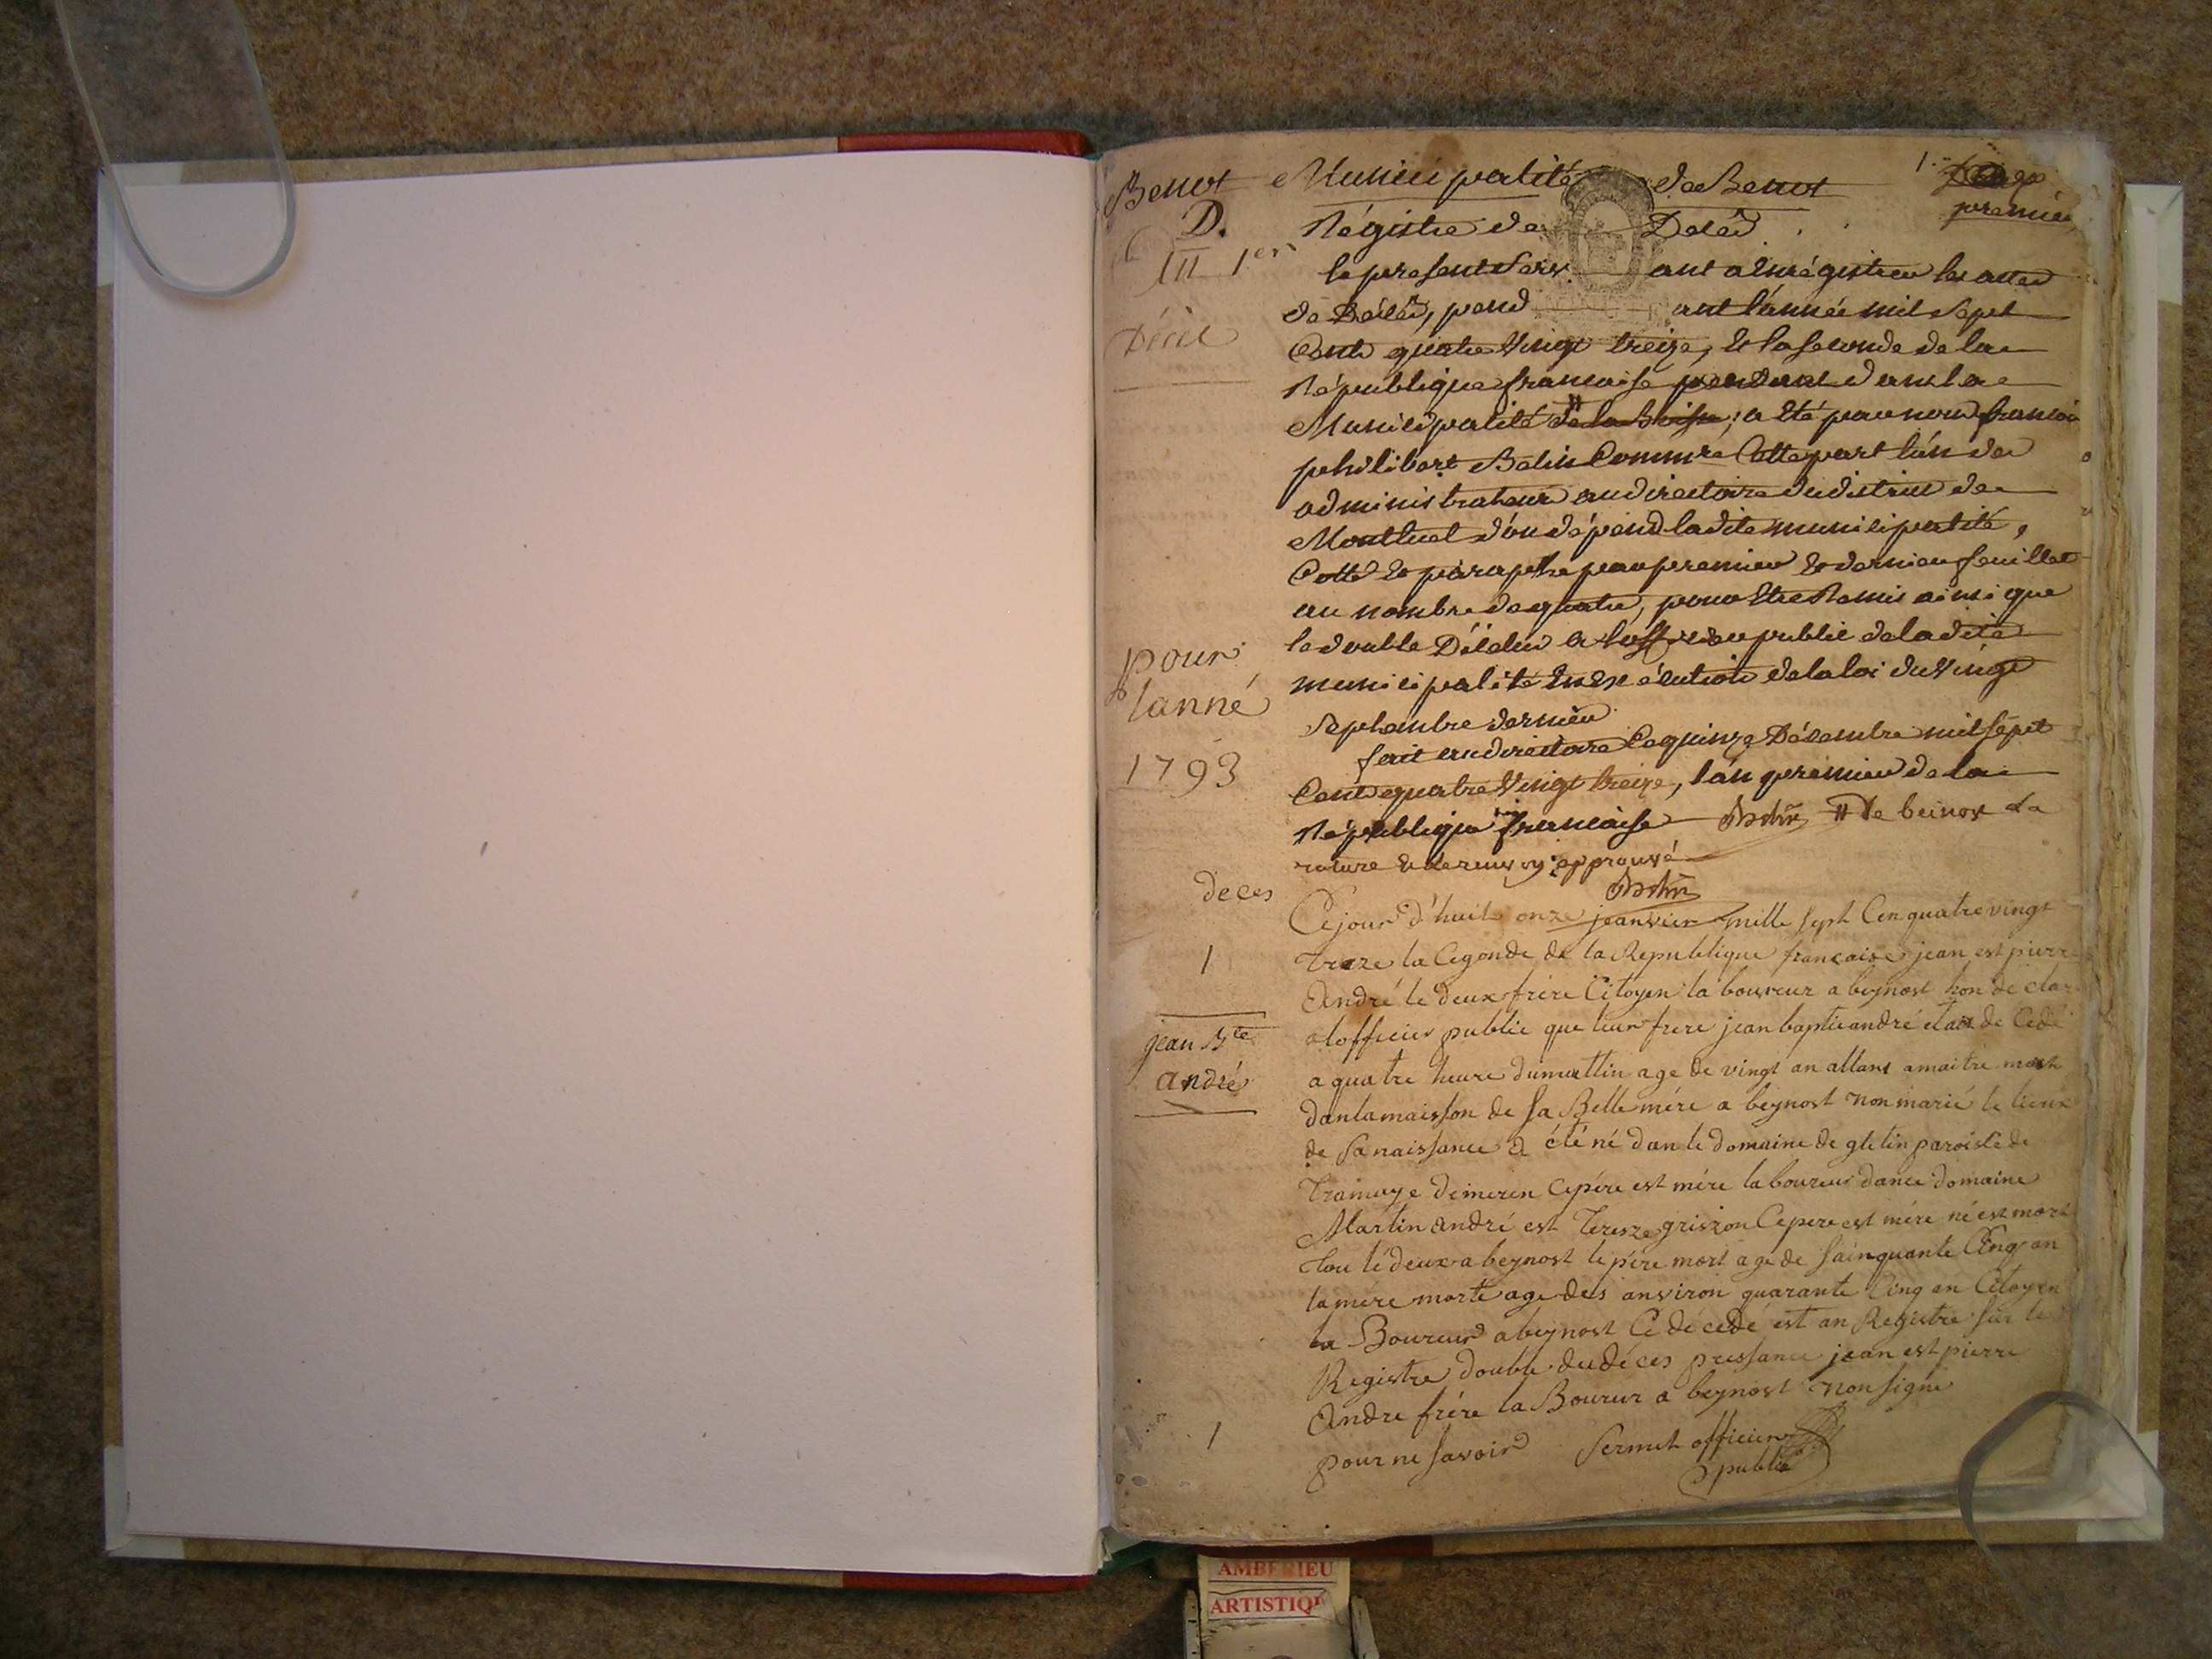 Benost
D.
III 1er
Décèl
pour
lanné
1793
Municipalité de Benost
1.er
premier
Régistre de Décéd
le present Servant a Enrégistrer les actes
de Décéd, pendant l'année mil sept
Cents quatre Vingt treize, & la seconde de la
République francaise pendant dans la
Municipalité de la Boisse; a été par nous francois
philibert Belin Commre Cotte part l'un des
administrateurs au directoire du district de
Montluel d'ou dépend ladite municipalité,
Cotté & paraphé par premier & dernier feuillet
au nombre de quatre, pour Etre Remis ainsi que
le double D'iceluy a lofficier public de ladite
municipalité En Exécution de la loi du Vingt
Septembre dernier
fait au directoire Ce quinze Décembre mil sept
Cent quatre Vingt treize, l'an premier de la
République francaise # De beinos la
rature & le renvoy approuvé
deces
1
jean Bte
andré
Cejour d'huit onze jeanvier mille sept Cen quatre vingt
treze la Cegonde de la Republique francaise jean est pierre
André le deux frère Citoyen la boureur a beynost hon dé clar
a lofficier public que leur frere jean baptie andré etait dé Cedé
a quatre heure dumattin age de vingt an allant amaitre mort
danlamaisson de sa Belle mére a beynost non marié le lieux
de sanaissance a été né dan le domaine de gletin paroisse de
Tramaye dimeren Cepére est mére laboureur dance domaine
Martin André est Teresze grison Cepere est mére né est mort
tou lé deux a beynost le pére mort age de sainquante Cinq an
la mére morte age des anviron quarante Cinq an Citoyen
la Boureur a beynost Ce décedé est an Registre sur le
Registre double dudéces pressance jean est pierre
Andre frére la Boureur a beynost non signe
pour ne savoir Sermet officier
public
1
AMBERIEU
ARTISTIQ